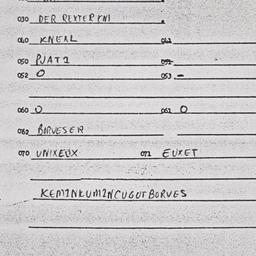 030 DER REXTER KNI
040 KNEAL 042
050 PJAT1 052
052 O 053 -
060 O 061 O
062 BIRVESER
070 UNIXEUX 071 EUXET
KEMINKUMINCUGUTBORVES